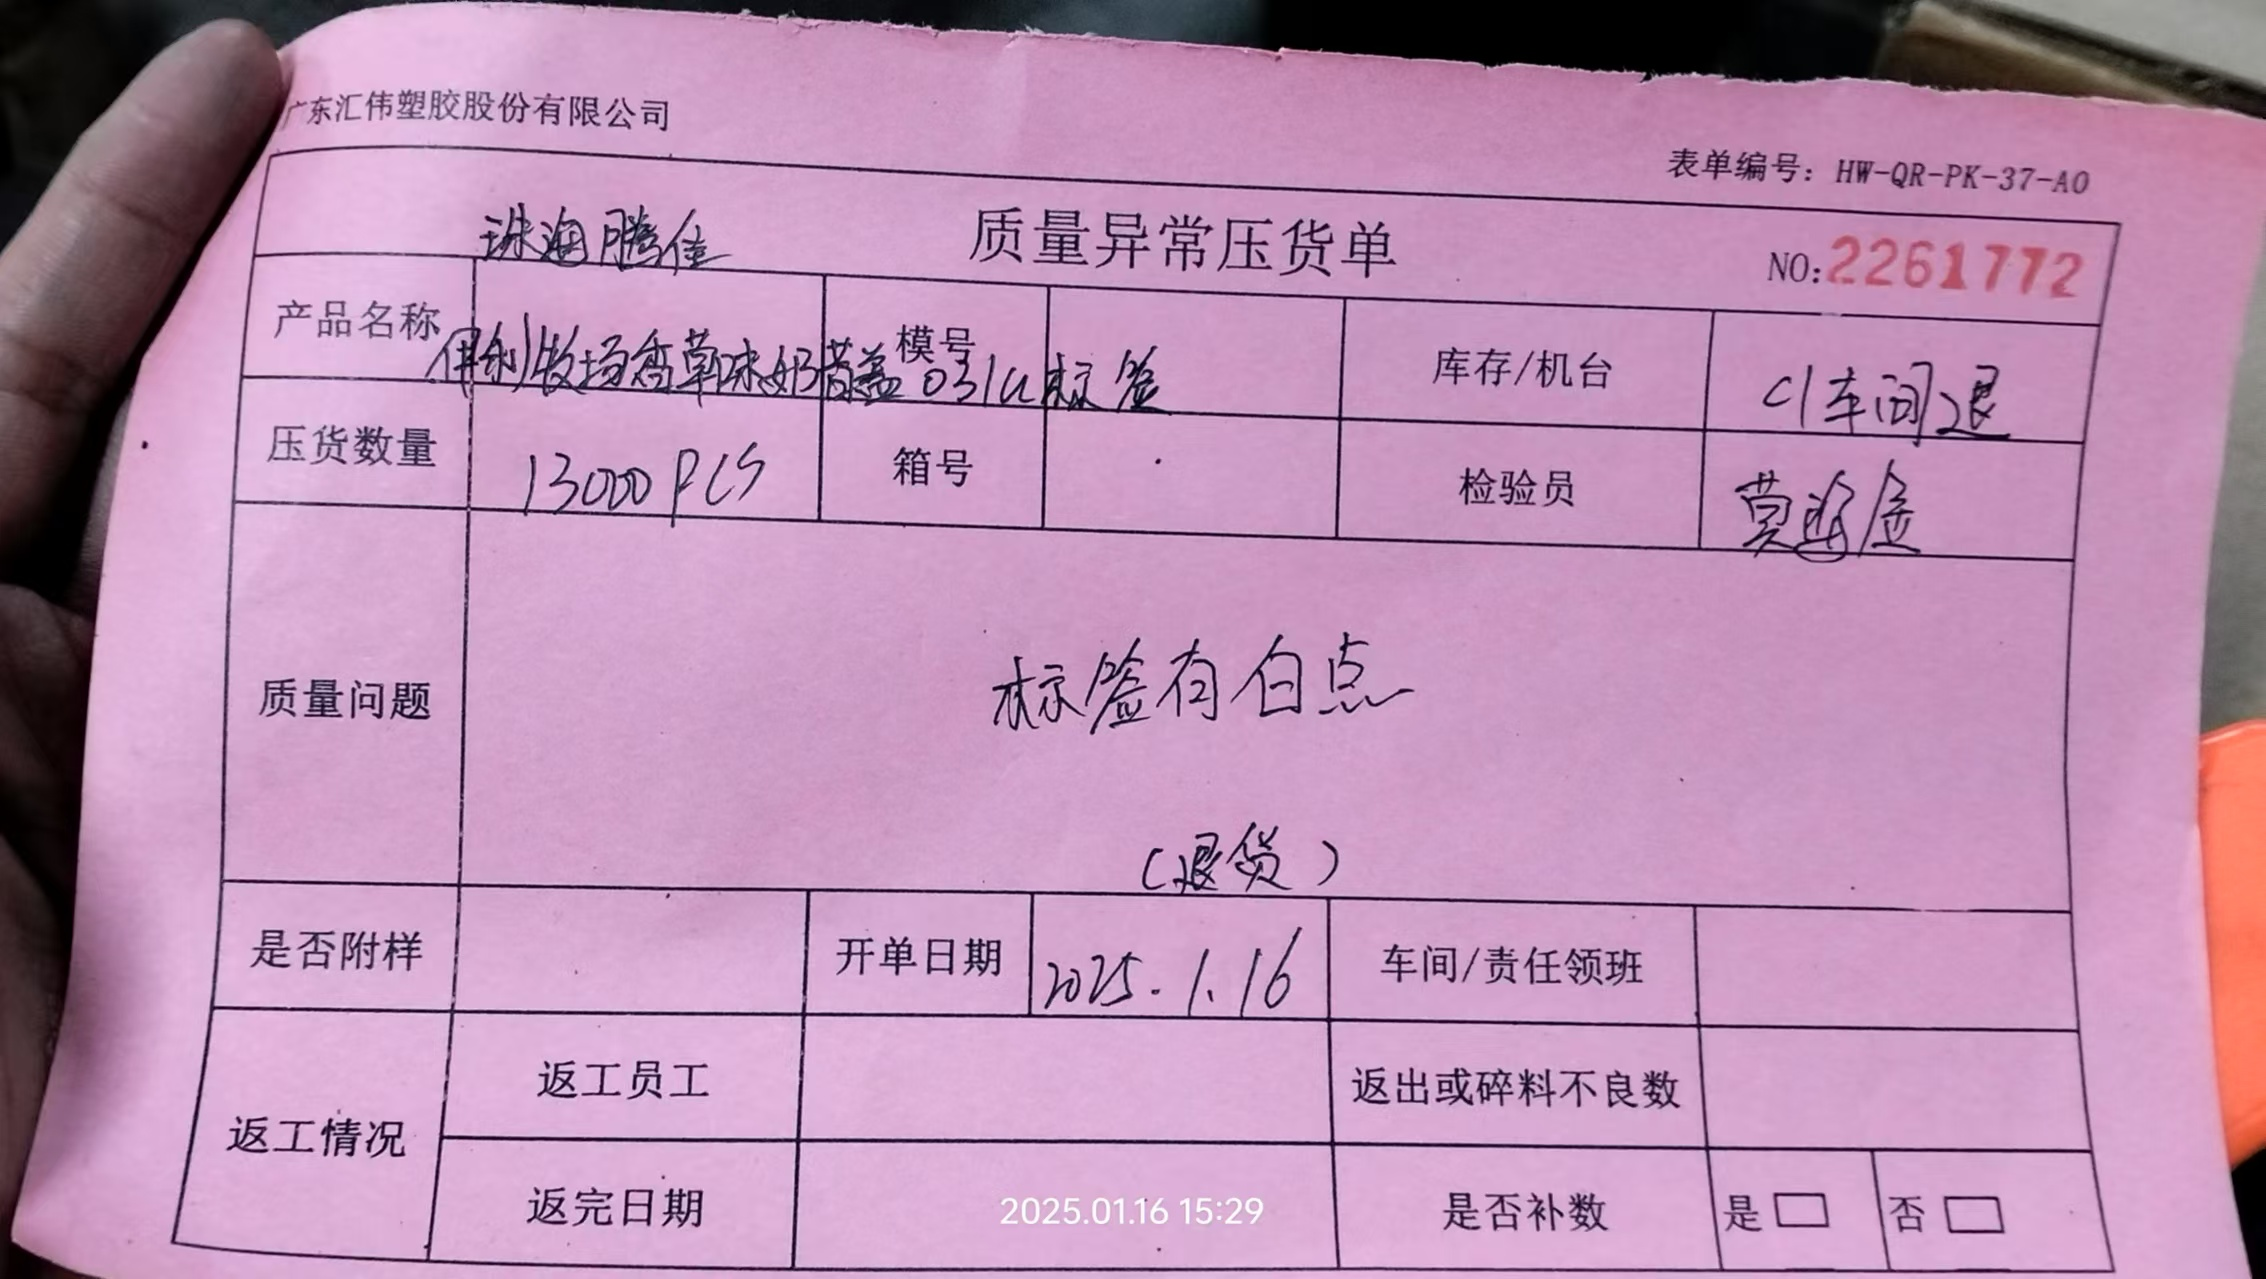 广东汇伟塑胶股份有限公司
表单编号：HW-QR-PK-37-A0
珠海腾佳
质量异常压货单
NO:2261772
产品名称 伊利牧场香草味奶昔盖031U标签
模号
库存/机台 C1车间退
压货数量 13000PCS
箱号
检验员 莫 金
质量问题
标签有白点
（退货）
是否附样
开单日期 2025.1.16
车间/责任领班
返工情况
返工员工
返出或碎料不良数
返完日期
是否补数 是 □ 否 □
2025.01.16 15:29